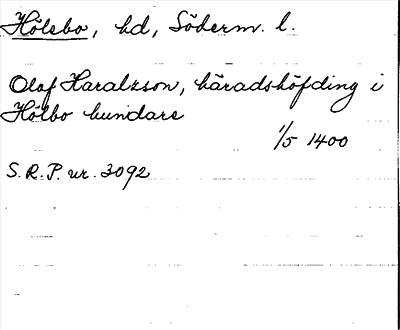 Hölebo, hd, Söderm. l.
Olof Haralzson, häradshöfding i
Hölbo hundare
1/5 1400
S.R.P. nr. 3092